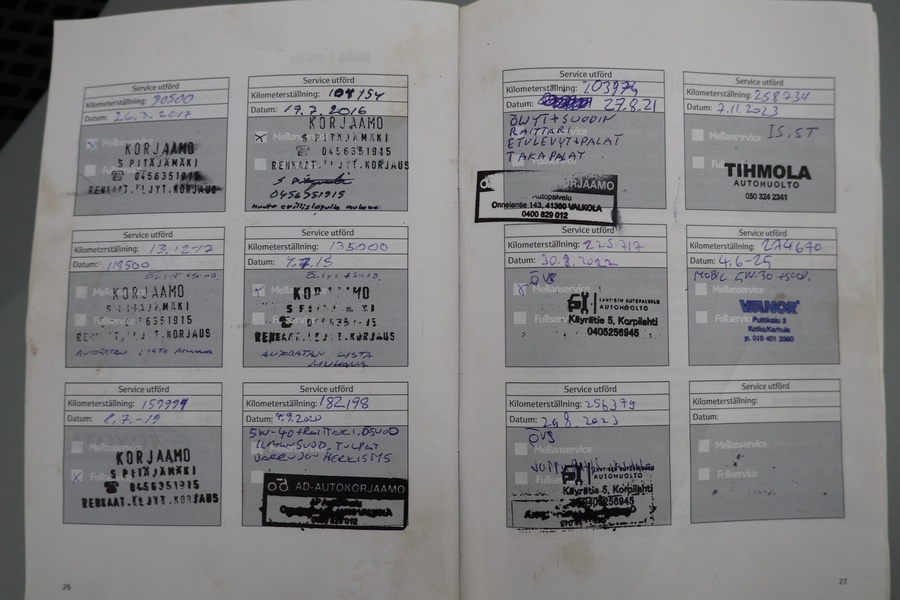 Service utförd
Kilometerställning: 90500
Datum: 26.3.2017
Mellanservice
KORJAAMO
SPITÄJÄMÄKI
☎ 0456351915
RENKAAT.ÖLJYT.KORJAUS
Service utförd
Kilometerställning:
Datum: 19.7.2016
KORJAAMO
SPITÄJÄMÄKI
☎ 0456351915
RENKAAT.ÖLJYT.KORJAUS
0456351915
Service utförd
Kilometerställning: 13.12-17
Datum: 119500
ÖLJYT +SUOD.
KORJAAMO
SPITÄJÄMÄKI
6351915
RENKAAT.ÖLJYT.KORJAUS
AUTODATAN LISTA MUKAAN
Service utförd
Kilometerställning: 135000
Datum:
ÖLJYT +SUOD.
Mellanservice
KORJAAMO
SPITÄJÄMÄKI
RENKAAT.ÖLJYT.KORJAUS
AUTODATAN LISTA
MUKAAN
Service utförd
Kilometerställning:
Datum: 2.7.-19
KORJAAMO
SPITÄJÄMÄKI
☎ 0456351915
RENKAAT.ÖLJYT.KORJAUS
Service utförd
Kilometerställning: 182198
Datum: 7.9.2020
5W-40+RAITTARI, ÖSUOD
ILMANSUOD, TULPAT
AD-AUTOKORJAAMO
26
Service utförd
Kilometerställning:
Datum: 27.8.21
ÖLJYT+SUODIN
RAITTARI
ETULEVYT+PALAT
TAKAPALAT
KORJAAMO
Autopalvelu
Onnelantie 143, 41360 VALKOLA
0400 829 012
Service utförd
Kilometerställning: 258734
Datum: 7.11.2023
Mellanservice
TIHMOLA
AUTOHUOLTO
050 324 2341
Service utförd
Kilometerställning: 225717
Datum: 30.8.2022
ÖVS
Mellanservice
Fullservice
AUTOHUOLTO
Käyrätie 5, Korpilahti
0405256945
Service utförd
Kilometerställning: 274670
Datum: 4.6-25
MOBIL 5W.30 +SUOD.
Mellanservice
Fullservice
WIANOR
Puitikatu 3
Kotka/Karhula
p. 010 401 3390
Service utförd
Kilometerställning: 256379
Datum: 29.8.2023
ÖVS
Mellanservice
AUTOHUOLTO
Käyrätie 5, Korpilahti
0405256945
Service utförd
Kilometerställning:
Datum:
Mellanservice
Fullservice
27